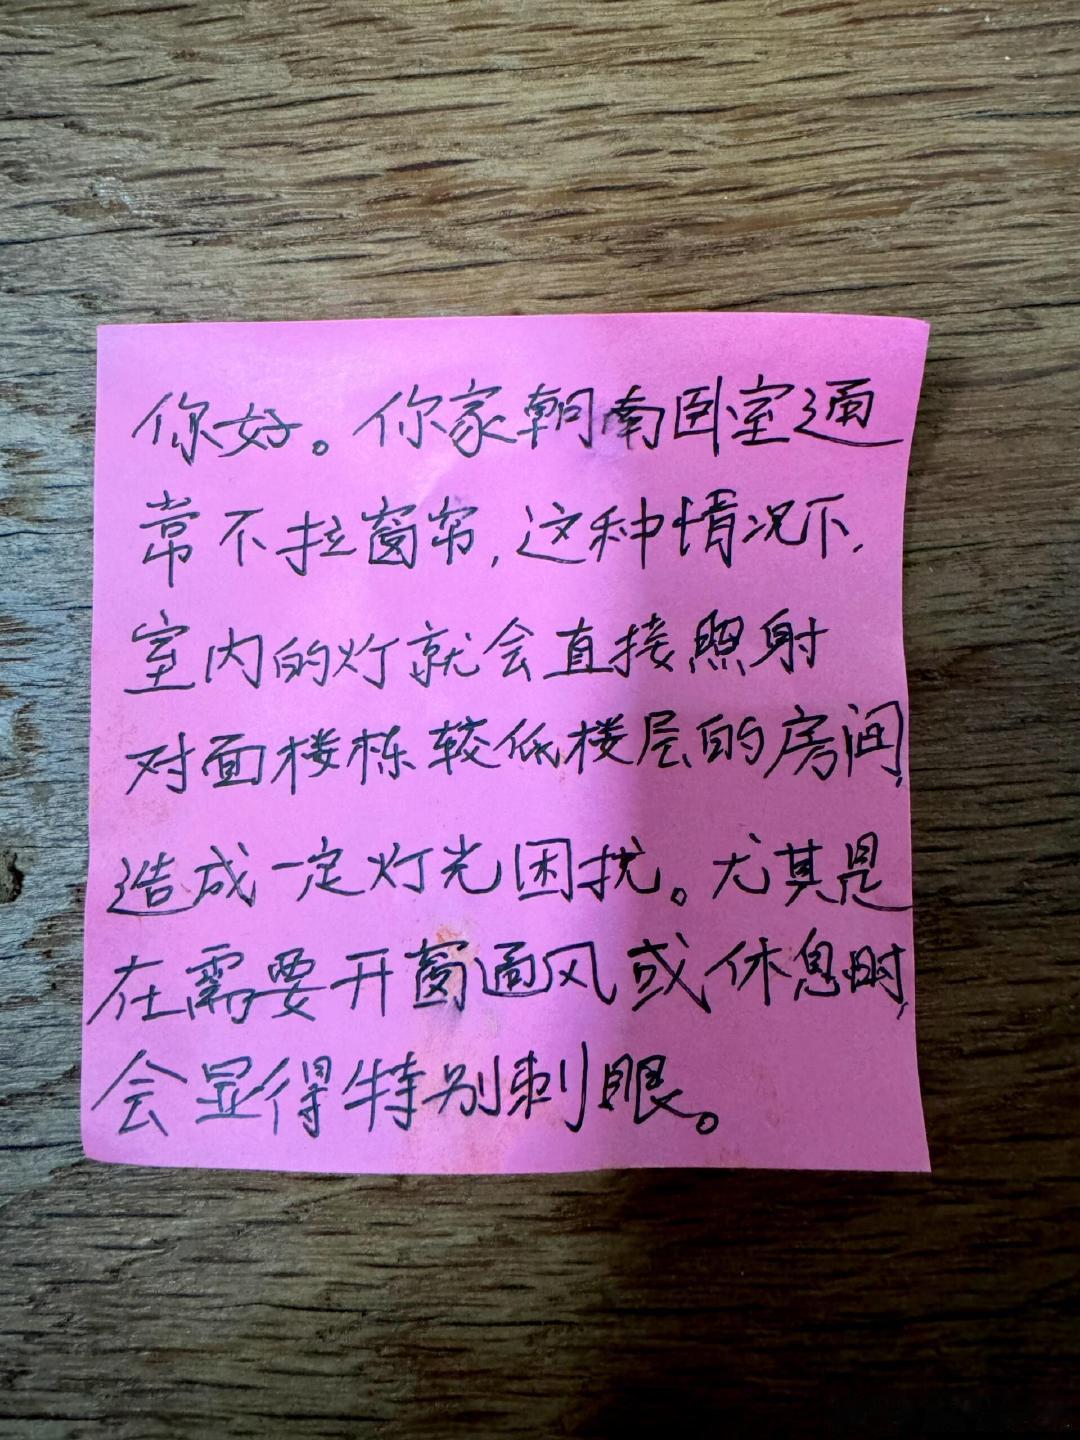 你好。你家朝南卧室通
常不拉窗帘,这种情况下,
室内的灯就会直接照射
对面楼栋较低楼层的房间,
造成一定灯光困扰。尤其是
在需要开窗通风或休息时,
会显得特别刺眼。